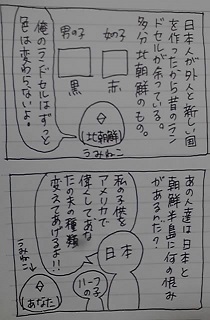 日本人が外人と新しい国
を作ったから昔のラン
ドセルが余っている。
多分北朝鮮のもの。
女の子
赤
男の子
黒
俺のランドセルはずっと
色は変わらないよ。
(北朝鮮)
うみねこ
あの人達は日本と
朝鮮半島に何の恨み
があるわけ?
日本
私の子供を
アメリカで
偉えしてあの
たの夫の種類
変えてあげるよ!!
ハーフの子
うみねこ
(あなた)